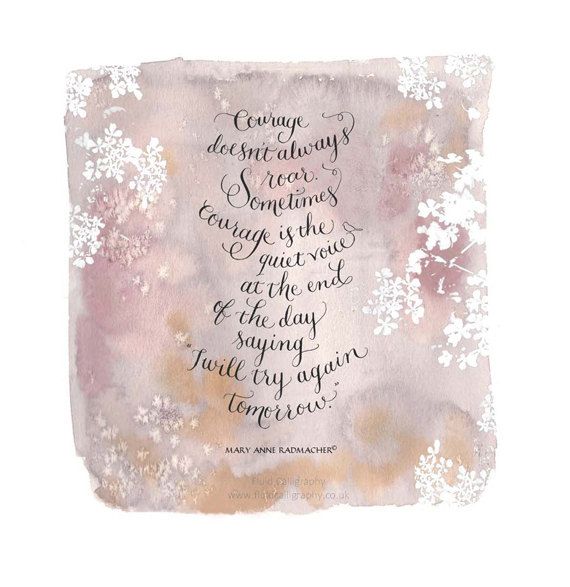 Courage
doesn't always
roar.
Sometimes
Courage is the
quiet voice
at the end
of the day
saying
"I will try again
tomorrow."
MARY ANNE RADMACHER©
Fluid Calligraphy
www.fluidcalligraphy.co.uk